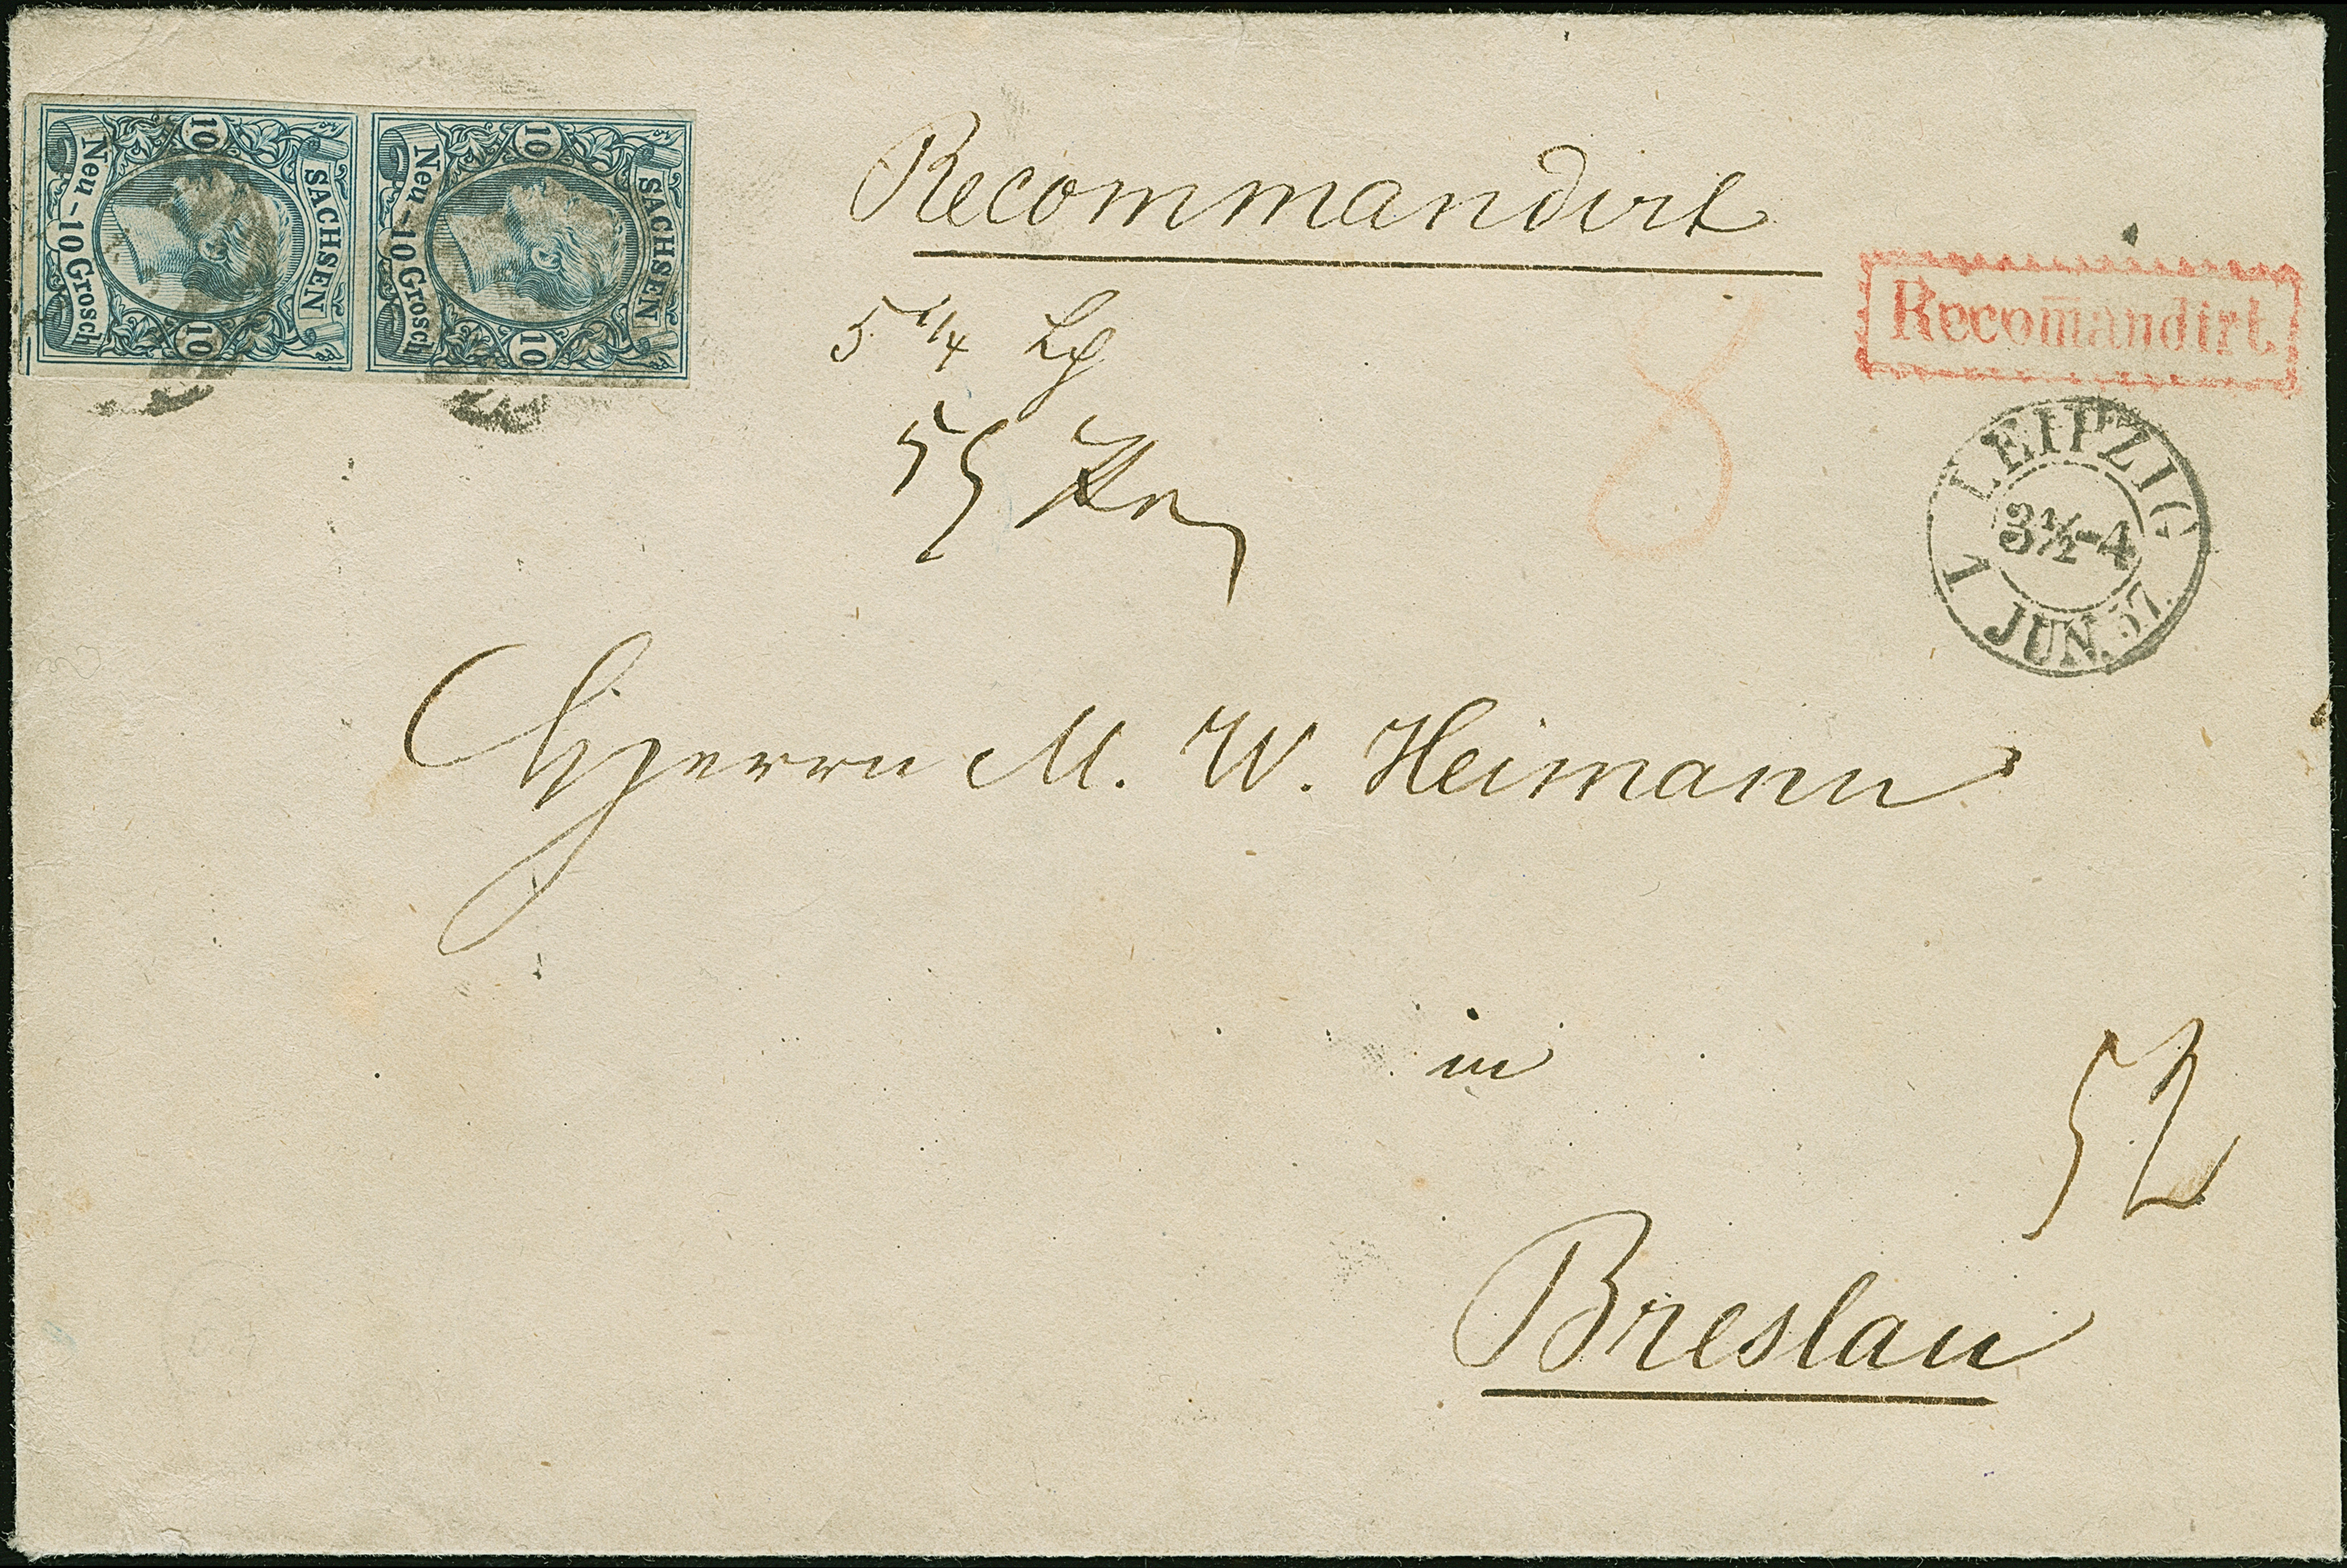 SACHSEN
10
10
Neu-10 Grosch
SACHSEN
10
10
Neu-10 Grosch
Recommandirt
Recom̄andirt
5 1/4 Lth
8
LEIPZIG
3½-4
1 JUN. 57.
Herrn M. W. Heimann
in
52
Breslau